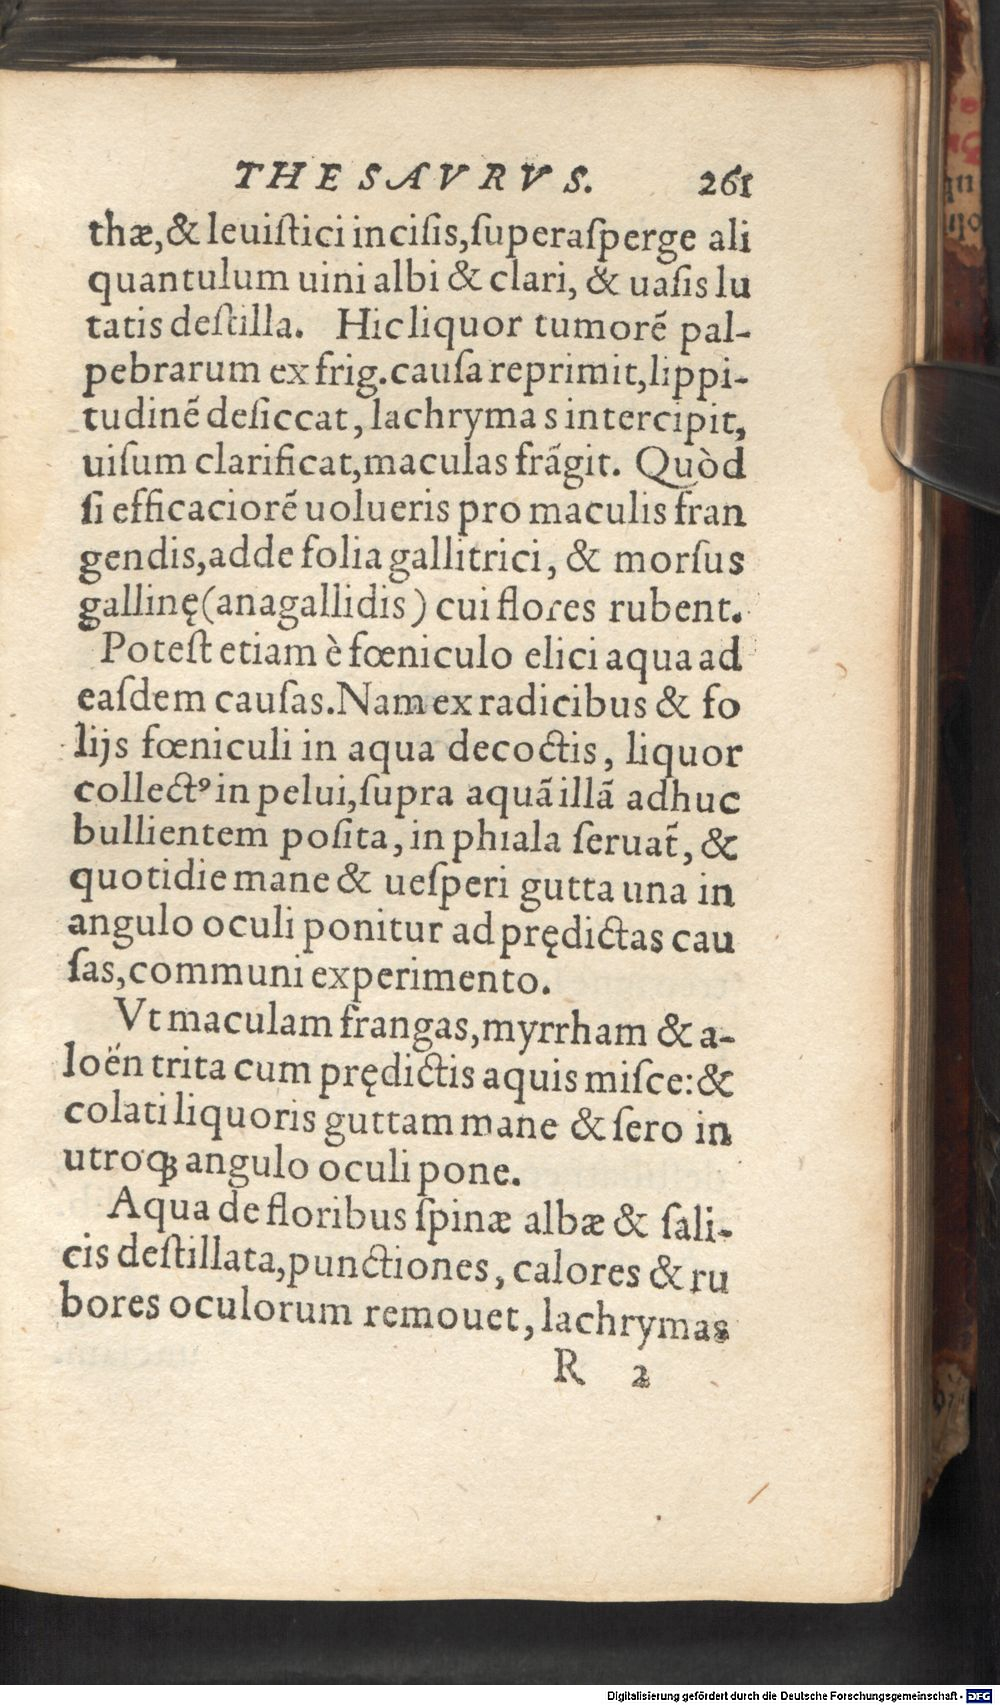 THESAVRVS. 261
thæ,& leuiſtici inciſis,ſuperaſperge ali
quantulum uini albi & clari, & uaſis lu
tatis deſtilla. Hic liquor tumorẽ pal-
pebrarum ex frig.cauſa reprimit,lippi-
tudinẽ deſiccat, lachrymas intercipit,
uiſum clarificat,maculas frãgit. Quòd
ſi efficaciorẽ uolueris pro maculis fran
gendis,adde folia gallitrici, & morſus
gallinę(anagallidis) cui flores rubent.
Poteſt etiam è fœniculo elici aqua ad
eaſdem cauſas.Nam ex radicibus & fo
lijs fœniculi in aqua decoctis, liquor
collectꝰ in pelui,ſupra aquã illã adhuc
bullientem poſita, in phiala ſeruat̃, &
quotidie mane & ueſperi gutta una in
angulo oculi ponitur ad prędictas cau
ſas,communi experimento.
Vt maculam frangas,myrrham & a-
loën trita cum prędictis aquis miſce:&
colati liquoris guttam mane & ſero in
utroq; angulo oculi pone.
Aqua de floribus ſpinæ albæ & ſali-
cis deſtillata,punctiones, calores & ru
bores oculorum remouet, lachrymas
R 2
Digitalisierung gefördert durch die Deutsche Forschungsgemeinschaft - DFG